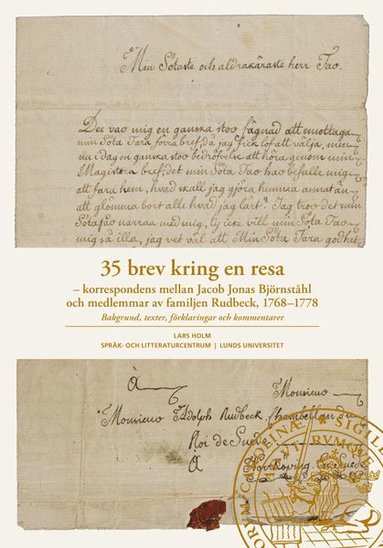 Min Sötaste och aldrakäraste herr Fao.
Det var mig en ganska stor fägnad att emottaga
min Söta Fars förra bref, då jag fick lof att välja, men
nu i dagen en ganska stor bedröfvelse att höra genom min
Magisters bref, det min Söta Far har befalt mig
att fara hem, hvad skall jag gjöra hemma annat än
att glömma bort alt hvad jag lärt? Jag tror det min
Söta far narras med mig, ty icke vill min Söta Far
mig så illa, jag vet väl at Min Söta Fars godhet
35 brev kring en resa
– korrespondens mellan Jacob Jonas Björnståhl
och medlemmar av familjen Rudbeck, 1768–1778
Bakgrund, texter, förklaringar och kommentarer
LARS HOLM
SPRÅK- OCH LITTERATURCENTRUM | LUNDS UNIVERSITET
À Monsieur
Monsieur Adolph Rudbeck Chambellan du
Roi de Suede
À
Norrköping